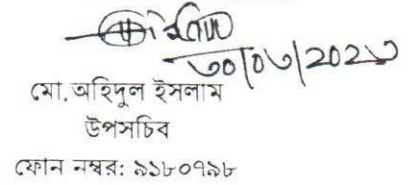 ৩০/০৩/2023
মো. অহিদুল ইসলাম
উপসচিব
ফোন নম্বর: ৯১৮০৭৯৮